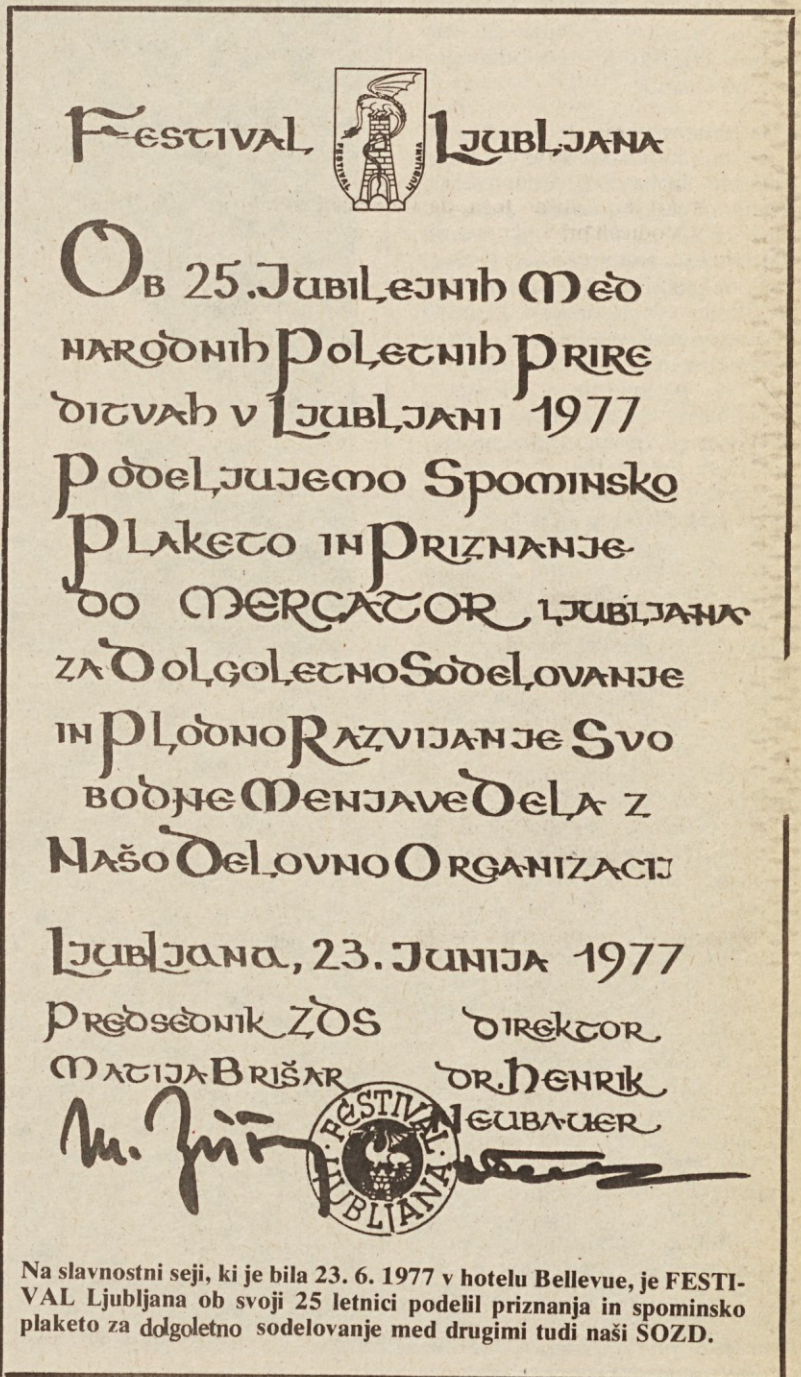 FESTIVAL LJUBLJANA
FESTIVAL LJUBLJANA
OB 25. JUBILEJNIH MED
NARODNIH POLETNIH PRIRE
DITVAH V LJUBLJANI 1977
PODELJUJEMO SPOMINSKO
PLAKETO IN PRIZNANJE
DO MERCATOR LJUBLJANA
ZA DOLGOLETNO SODELOVANJE
IN PLODNO RAZVIJANJE SVO
BODNE MENJAVE DELA Z
NAŠO DELOVNO ORGANIZACIJ
LJUBLJANA, 23. JUNIJA 1977
PREDSEDNIK ZDS DIREKTOR
MATIJA BRIŠAR DR. HENRIK
NEUBAUER
FESTIVAL LJUBLJANA
Na slavnostni seji, ki je bila 23. 6. 1977 v hotelu Bellevue, je FESTI-
VAL Ljubljana ob svoji 25 letnici podelil priznanja in spominsko
plaketo za dolgoletno sodelovanje med drugimi tudi naši SOZD.